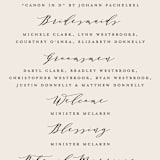 "CANON IN D" BY JOHANN PACHELBEL
Bridesmaids
MICHELE CLARK, LYNN WESTBROOKE,
COURTNEY O'SHEA, ELIZABETH DONNELLY
Groomsmen
DARYL CLARK, BRADLEY WESTBROOK,
CHRISTOPHER WESTBROOK, RYAN WESTBROOK,
JUSTIN DONNELLY, MATTHEW DONNELLY
Welcome
MINISTER MCLAREN
Blessing
MINISTER MCLAREN